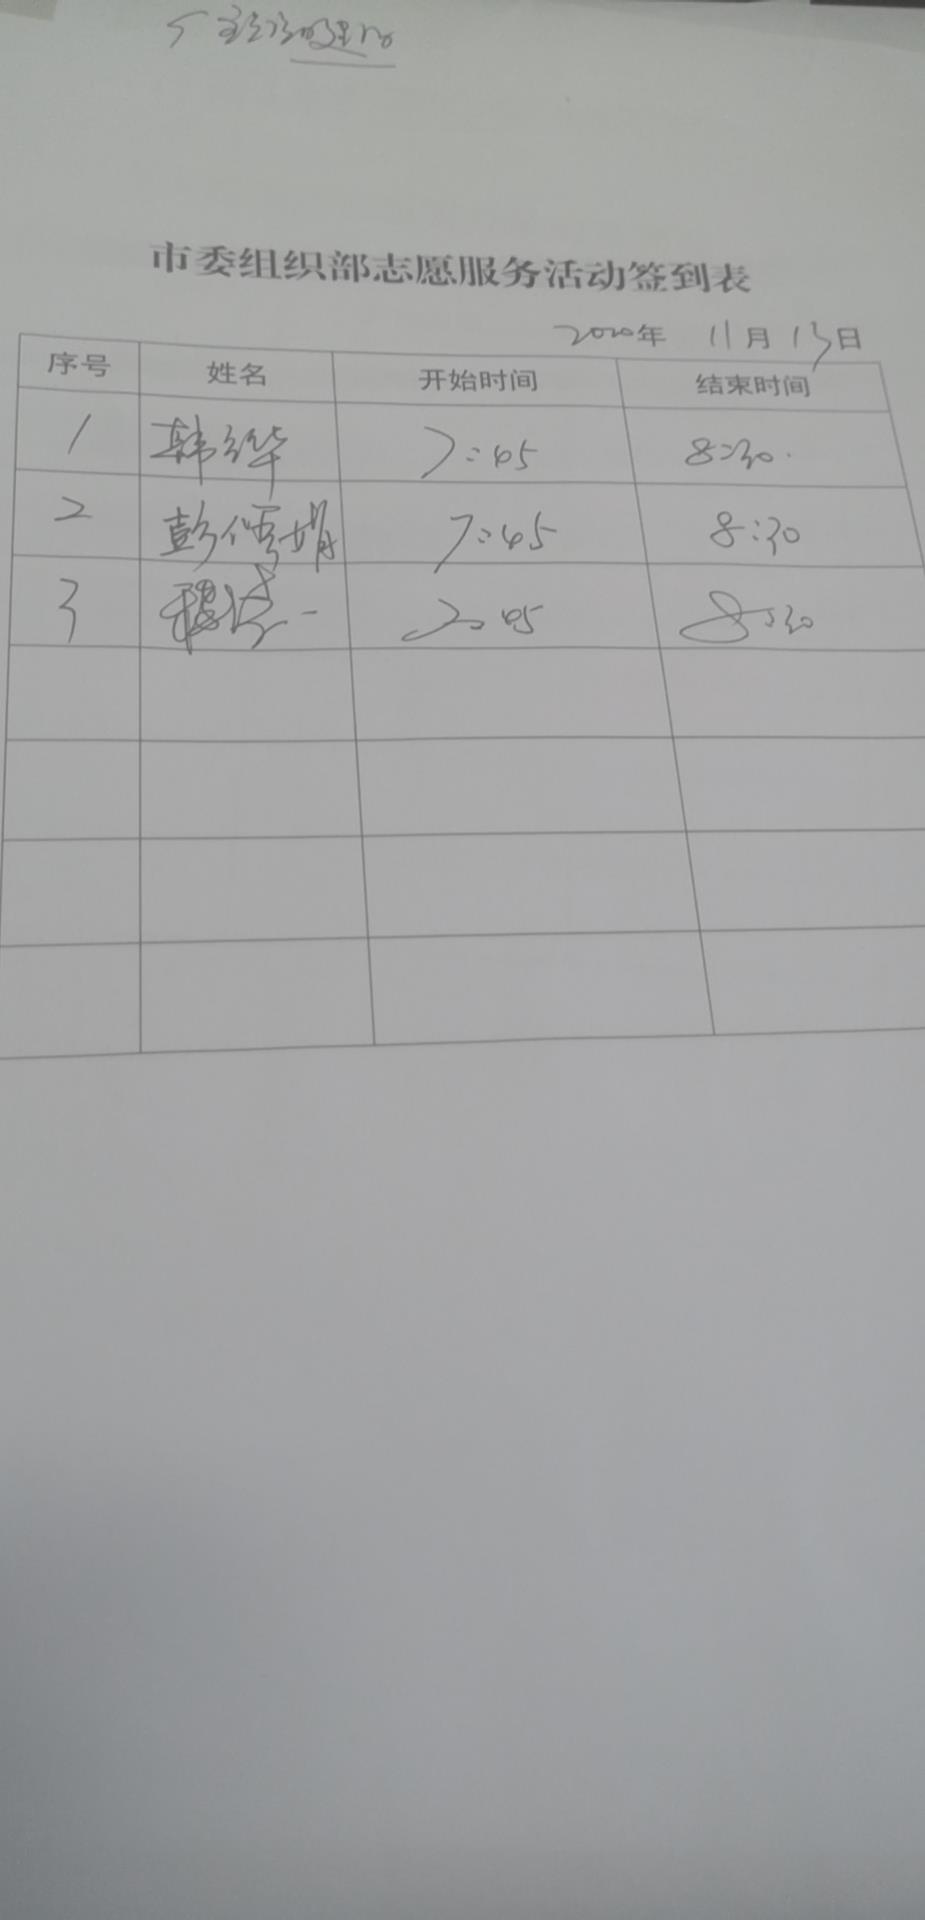 市委组织部志愿服务活动签到表
2020年 11月 13日
序号 姓名 开始时间 结束时间
1 韩 华 7:45 8:30
2 彭倩娟 7:45 8:30
3 穆 一 7:45 8:30